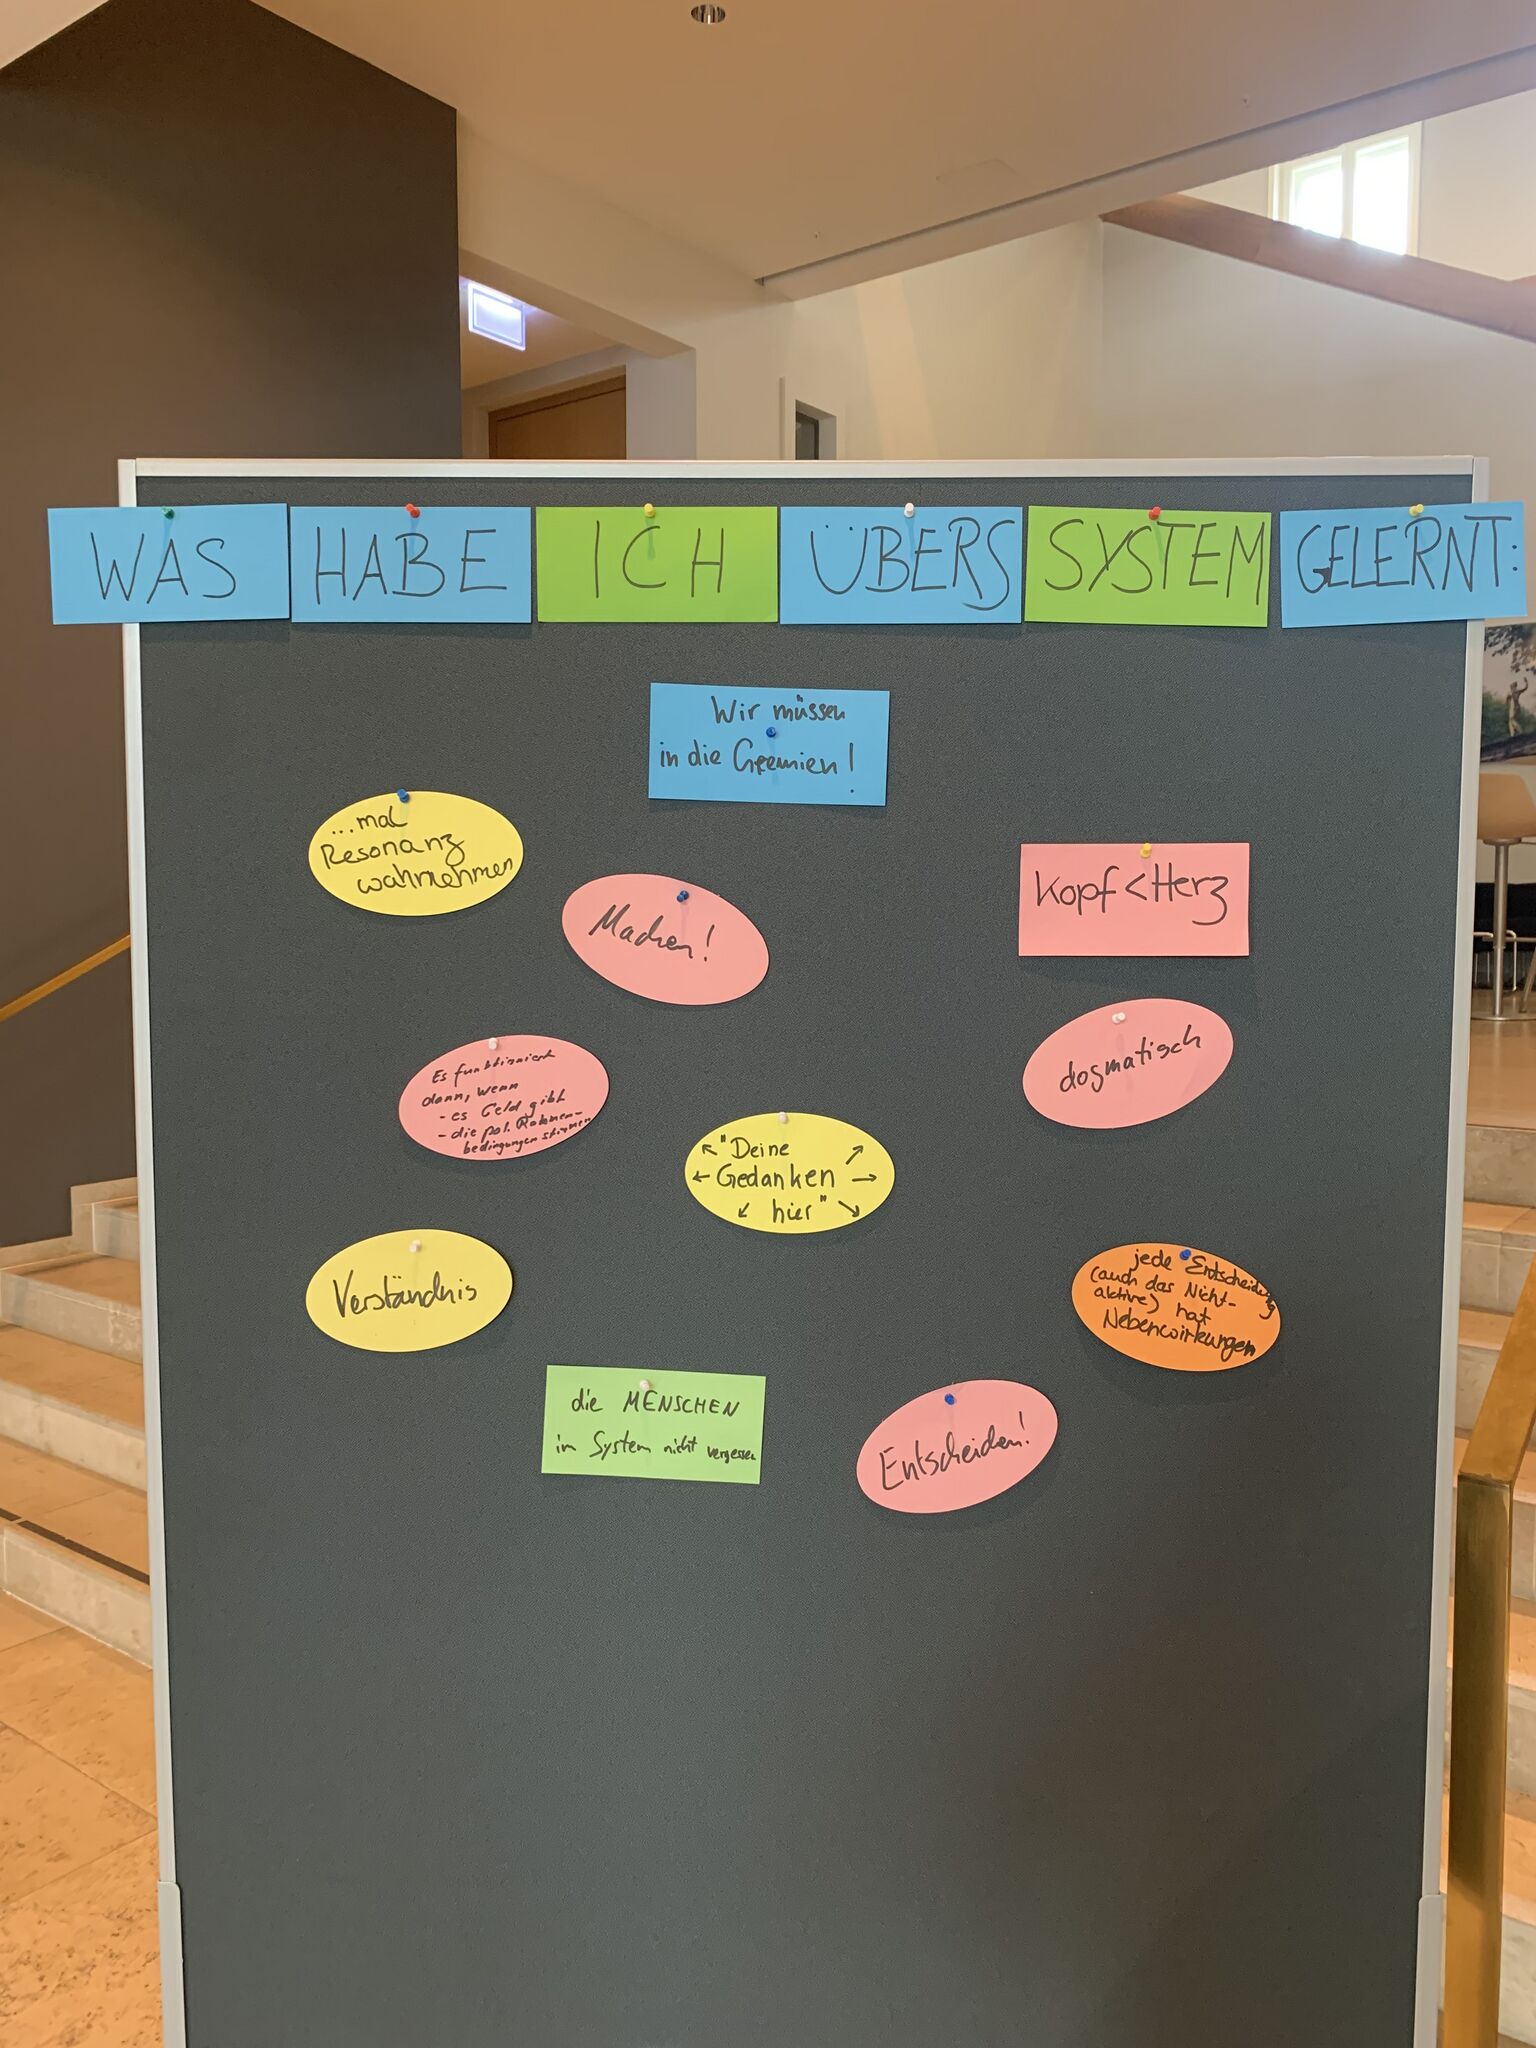 WAS HABE ICH ÜBERS SYSTEM GELERNT:
Wir müssen
in die Gremien!
...mal
Resonanz
wahrnehmen
Machen!
Kopf < Herz
Es funktioniert
dann, wenn
- es Geld gibt
- die pol. Rahmen-
bedingungen stimmen
dogmatisch
"Deine
Gedanken
hier"
Verständnis
jede Entscheidung
(auch das Nicht-
aktive) hat
Nebenwirkungen
die MENSCHEN
im System nicht vergessen
Entscheiden!